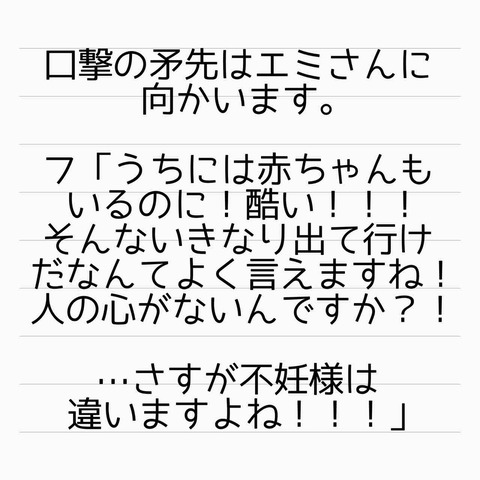 口撃の矛先はエミさんに
向かいます。
フ「うちには赤ちゃんも
いるのに！酷い！！！
そんないきなり出て行け
だなんてよく言えますね！
人の心がないんですか？！
…さすが不妊様は
違いますよね！！！」